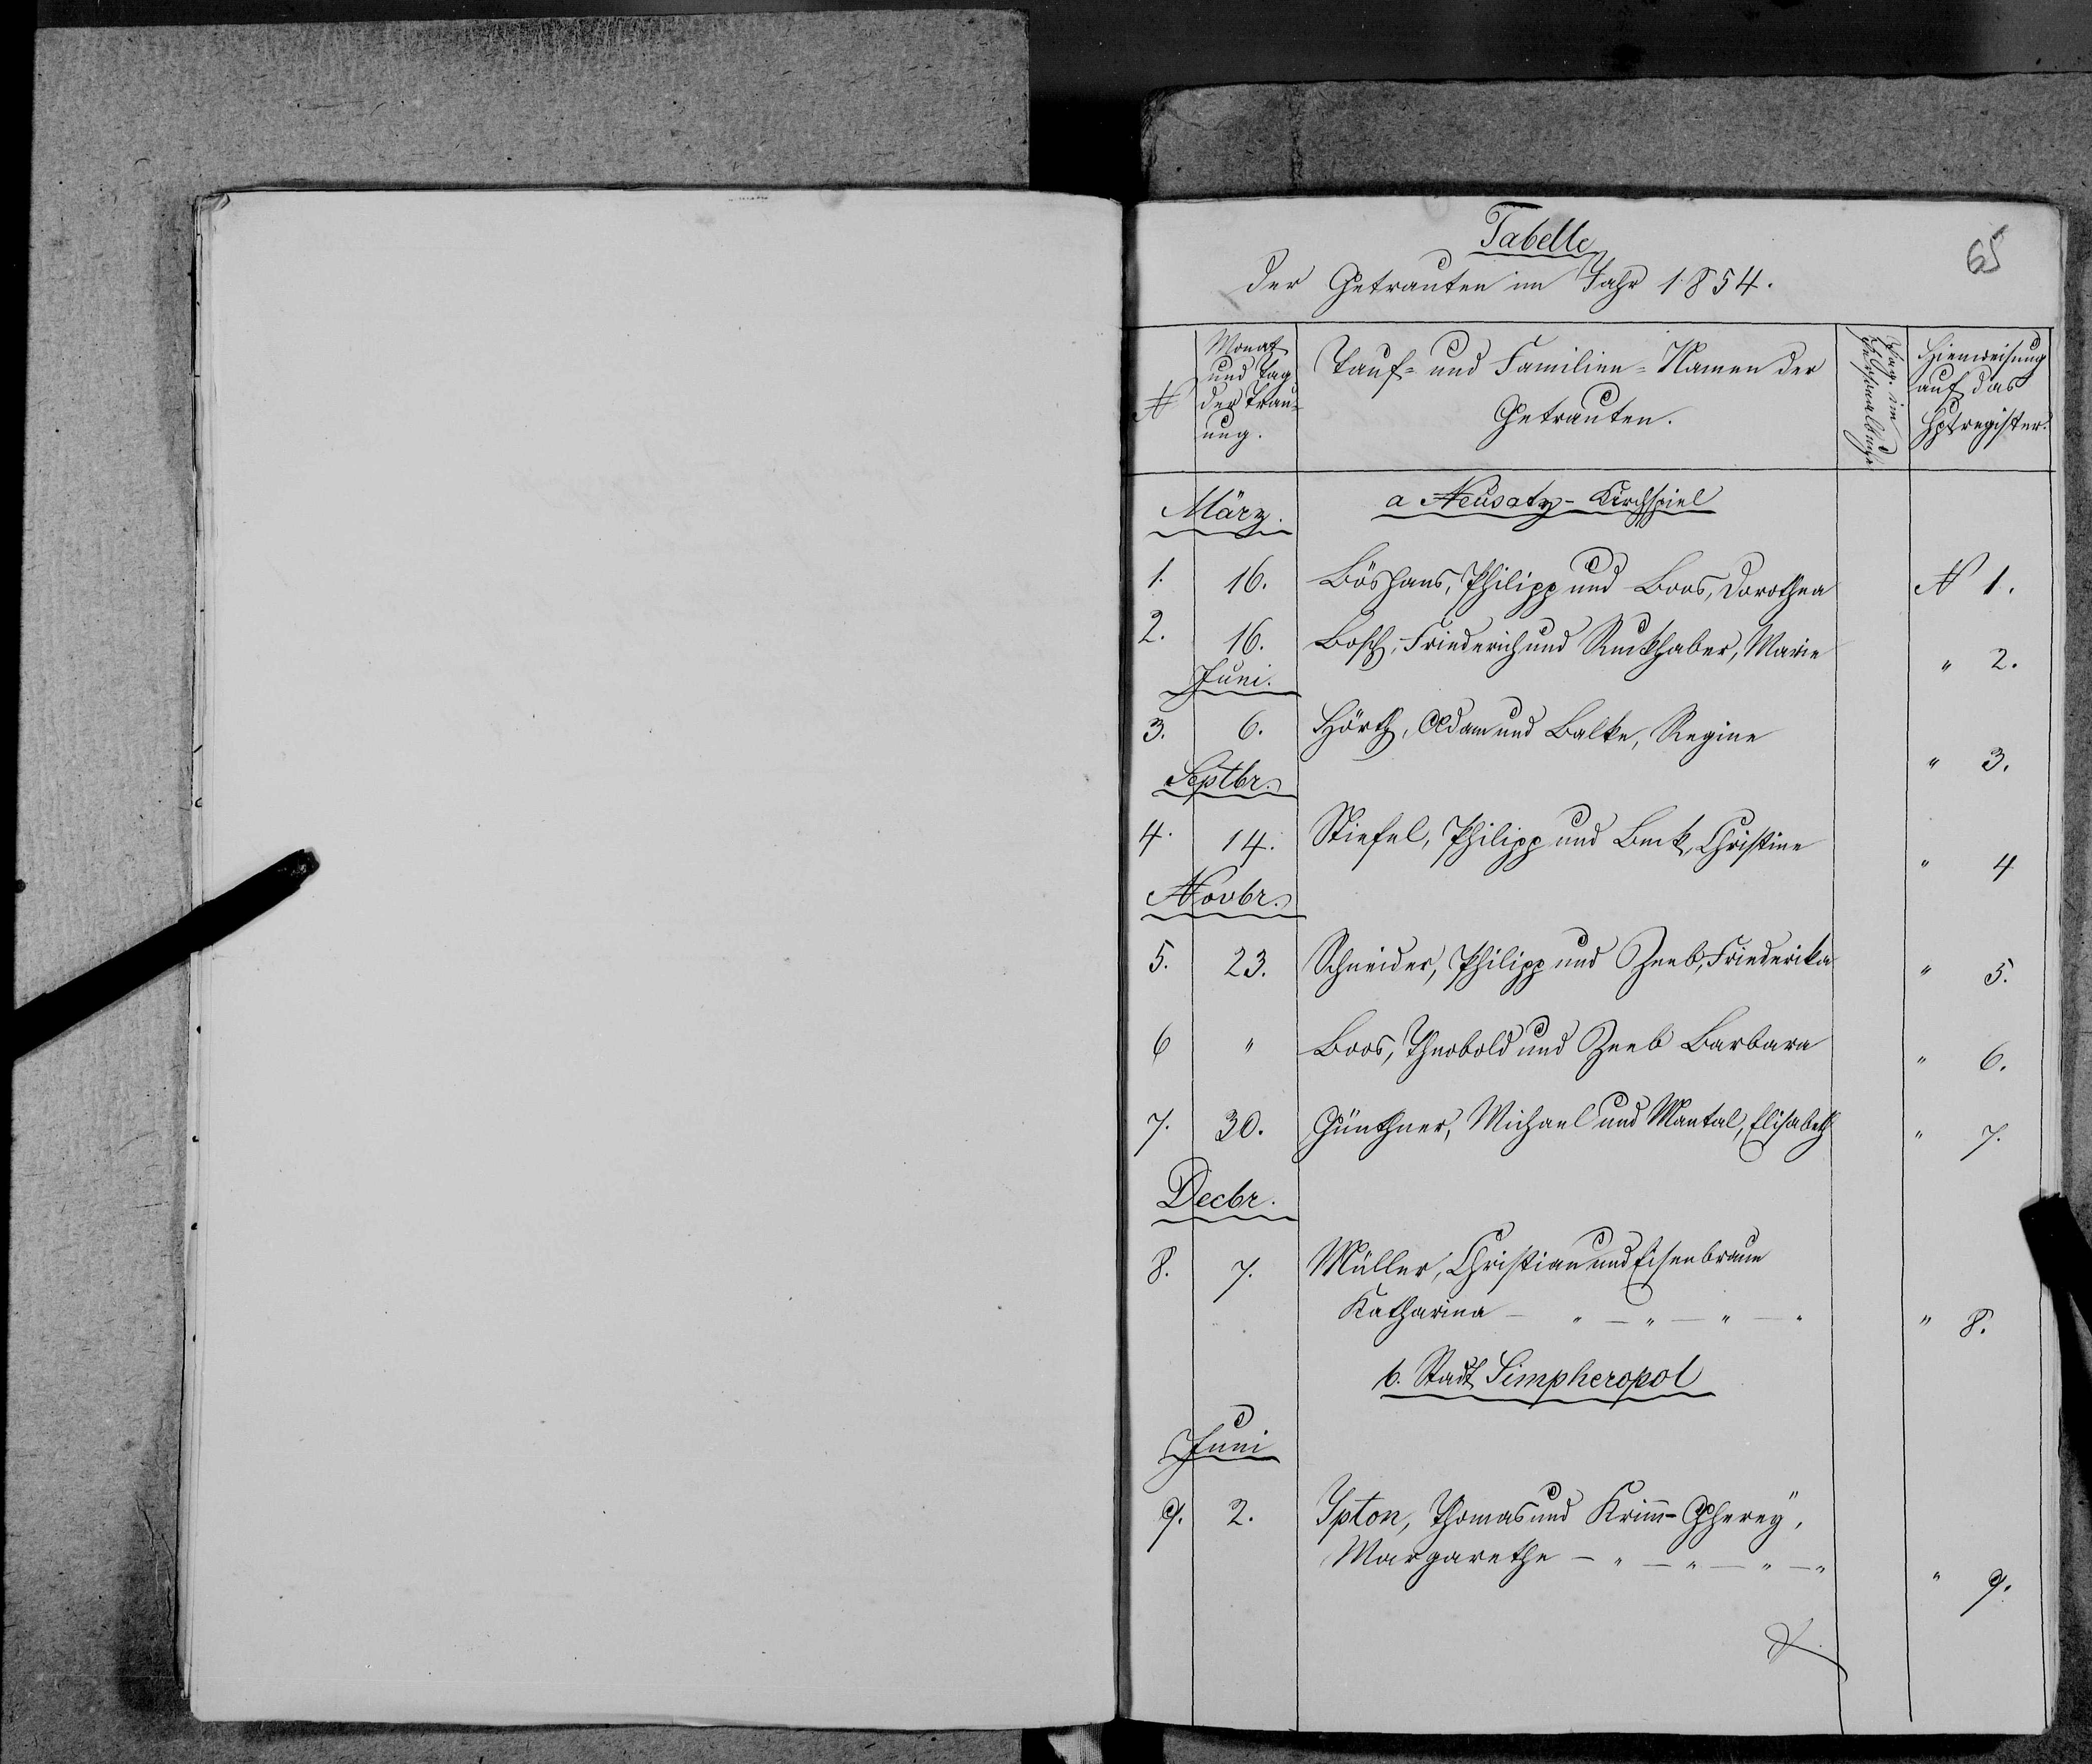 Tabelle
65
der Getrauten im Jahr 1854.
№
Monat
und Tag
der Trau-
ung.
Tauf- und Familien-Namen der
Getrauten.
Pag. im
Personalbuche
Hienweisung
auf das
Hptregister.
März.
a Neusatz-Kirchspiel
1. 16. Böshans, Philipp und Boos, Dorothea № 1.
2. 16. Bosch, Friederich und Ruckhaber, Marie " 2.
Juni.
3. 6. Hörth, Adam und Balke, Regine " 3.
Septbr.
4. 14. Stiefel, Philipp und Beck, Christine " 4
Novbr.
5. 23. Schneider, Philipp und Zeeb, Friederika " 5.
6 " Boos, Theobold und Zeeb Barbara " 6.
7. 30. Günthner, Michael und Mantal, Elisabeth " 7.
Decbr.
8. 7. Müller, Christian und Eisenbraun
Katharina — " — " — " — " " 8.
b. Stadt Simpheropol
Juni
9. 2. Ypton, Thomas und Krimm-Gherey,
Margarethe — " — " — " — " " 9.